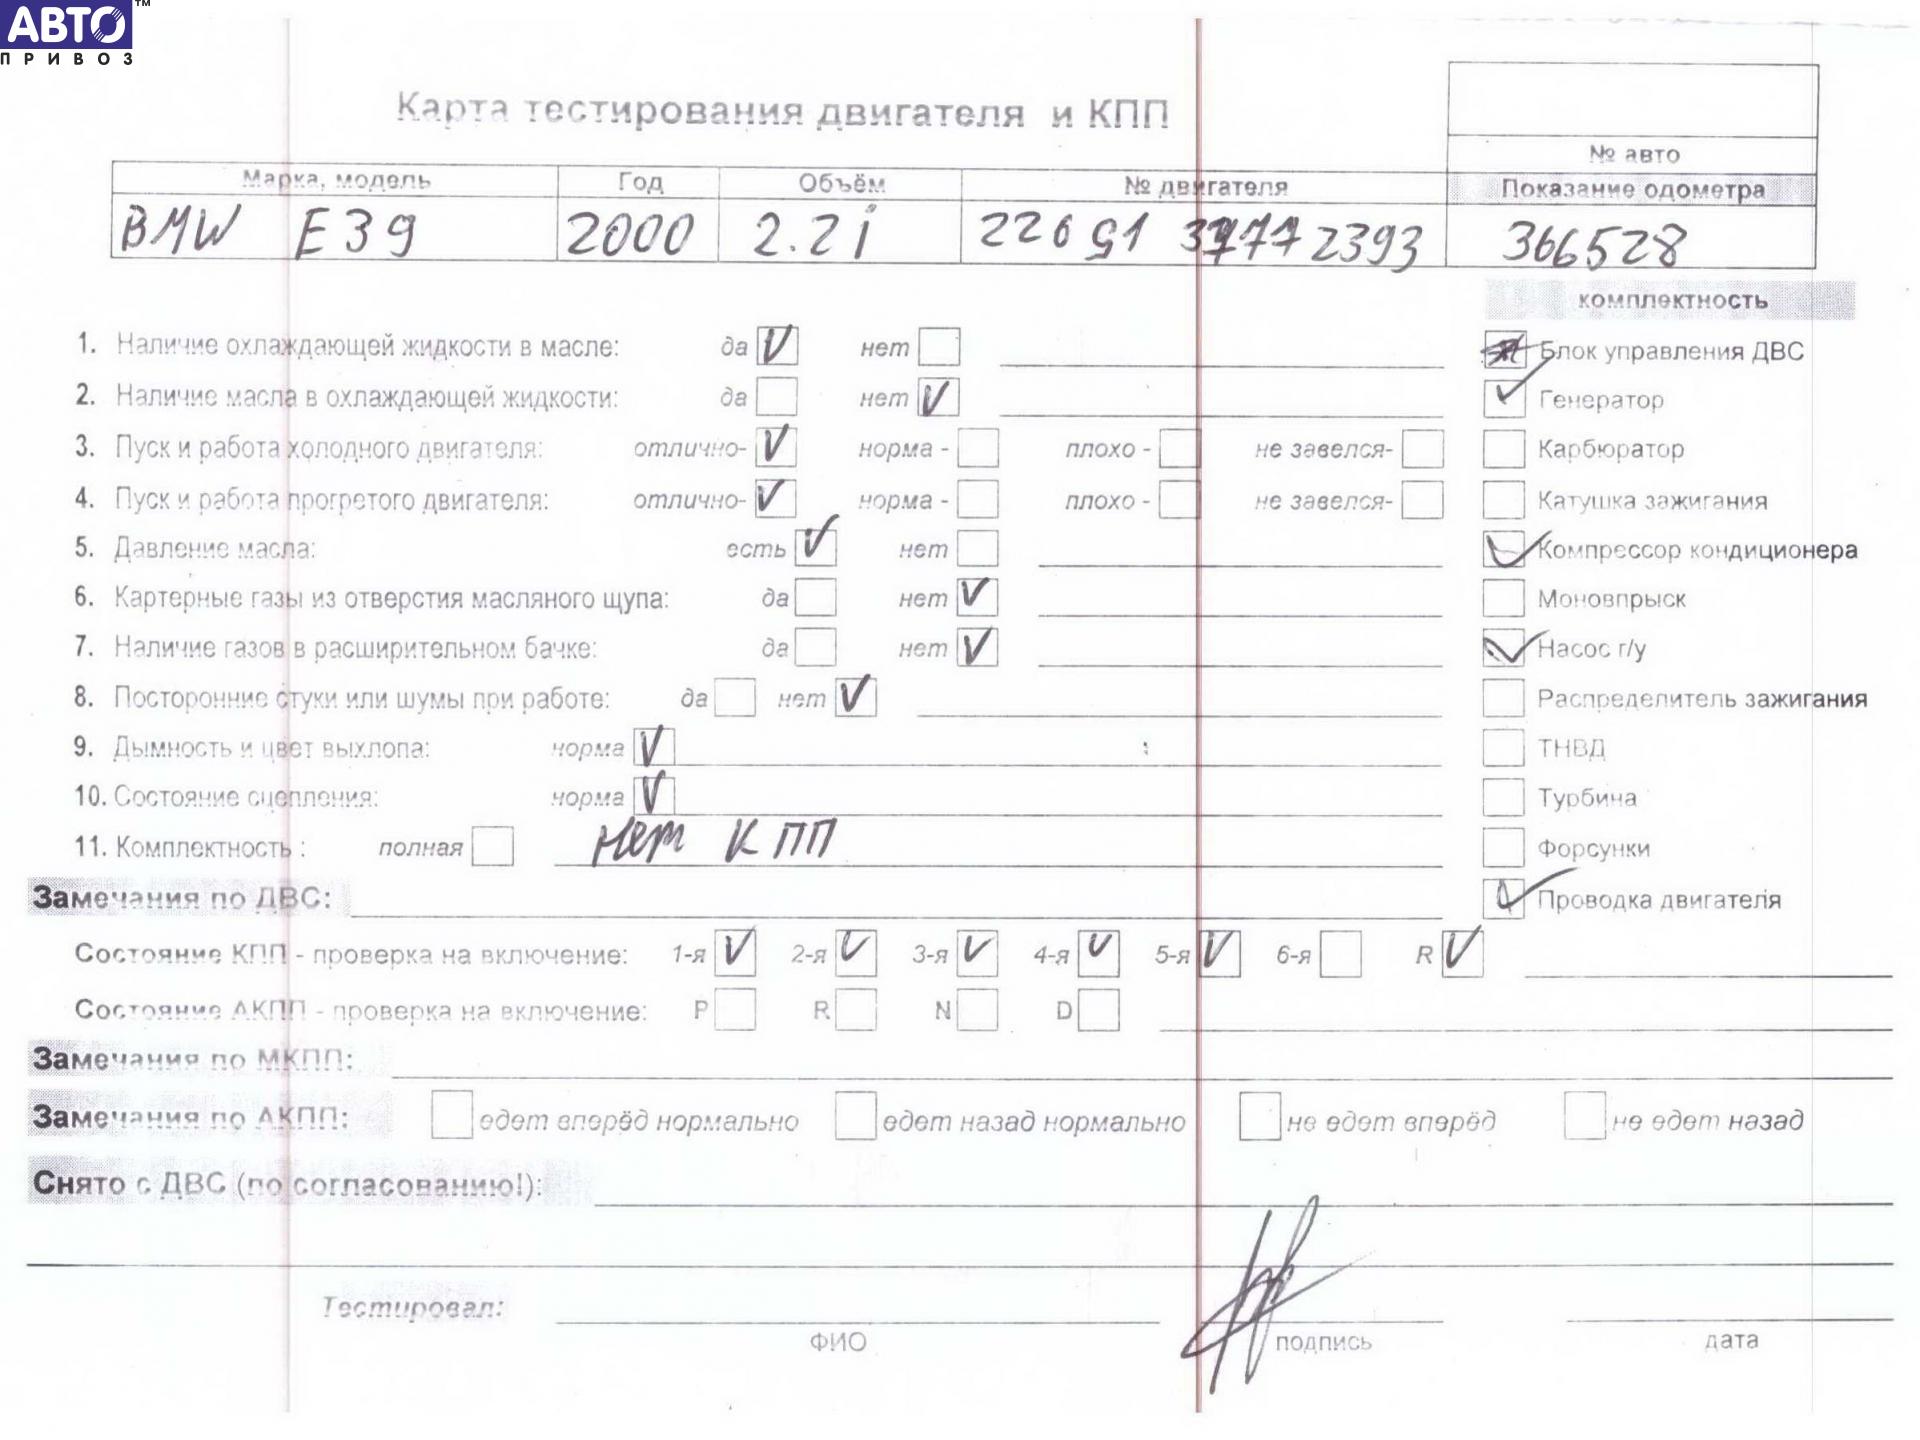 АВТО™
ПРИВОЗ
Карта тестирования двигателя и КПП
№ авто
Марка, модель Год Объём № двигателя Показание одометра
BMW E39 2000 2.2i 366528
комплектность
1. Наличие охлаждающей жидкости в масле: да V нет Блок управления ДВС
2. Наличие масла в охлаждающей жидкости: да нет V Генератор
3. Пуск и работа холодного двигателя: отлично- V норма - плохо - не завелся- Карбюратор
4. Пуск и работа прогретого двигателя: отлично- V норма - плохо - не завелся- Катушка зажигания
5. Давление масла: есть V нет Компрессор кондиционера
6. Картерные газы из отверстия масляного щупа: да нет V Моновпрыск
7. Наличие газов в расширительном бачке: да нет V Насос г/у
8. Посторонние стуки или шумы при работе: да нет V Распределитель зажигания
9. Дымность и цвет выхлопа: норма V ТНВД
10. Состояние сцепления: норма V Турбина
11. Комплектность : полная нет КПП Форсунки
Замечания по ДВС: Проводка двигателя
Состояние КПП - проверка на включение: 1-я V 2-я V 3-я V 4-я V 5-я V 6-я R V
Состояние АКПП - проверка на включение: P R N D
Замечания по МКПП:
Замечания по АКПП: едет вперёд нормально едет назад нормально не едет вперёд не едет назад
Снято с ДВС (по согласованию!):
Тестировал:
ФИО подпись дата